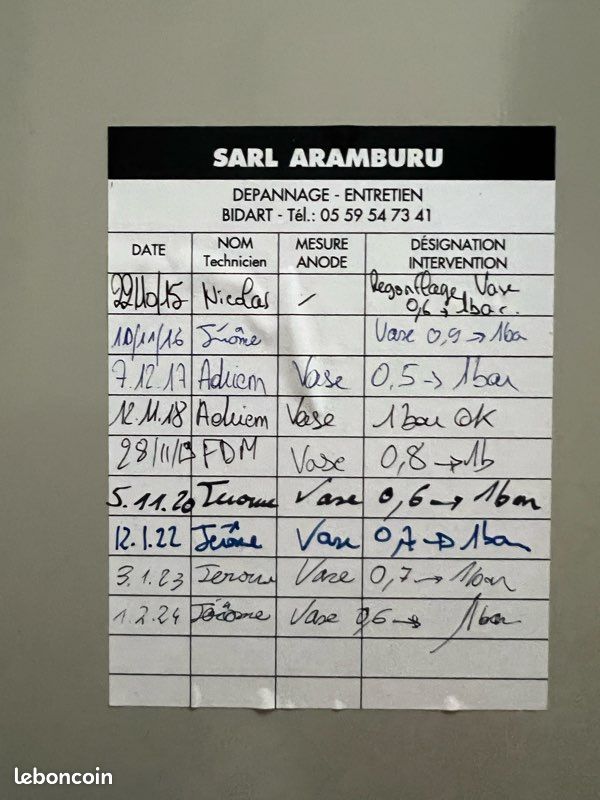 SARL ARAMBURU
DEPANNAGE - ENTRETIEN
BIDART - Tél.: 05 59 54 73 41
DATE NOM Technicien MESURE ANODE DÉSIGNATION INTERVENTION
22/10/15 Nicolas / Regonflage Vase 0,6 → 1bar.
10/11/16 Jérôme Vase 0,9 → 1bar
7.12.17 Adrien Vase 0,5 → 1bar
12.11.18 Adrien Vase 1bar OK
28/11/19 FDM Vase 0,8 → 1b
5.11.20 Jerome Vase 0,6 → 1bar
12.1.22 Jérôme Vase 0,7 → 1bar
3.1.23 Jerome Vase 0,7 → 1bar
1.2.24 Jérôme Vase 0,6 → 1bar
leboncoin